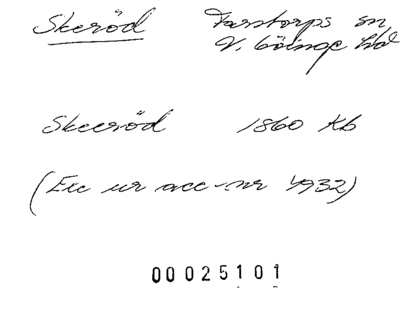 Skeröd Farstorps sn
V. Göinge hd
Skeeröd 1860 Kb
(Exc ur acc-nr 4932)
00025101